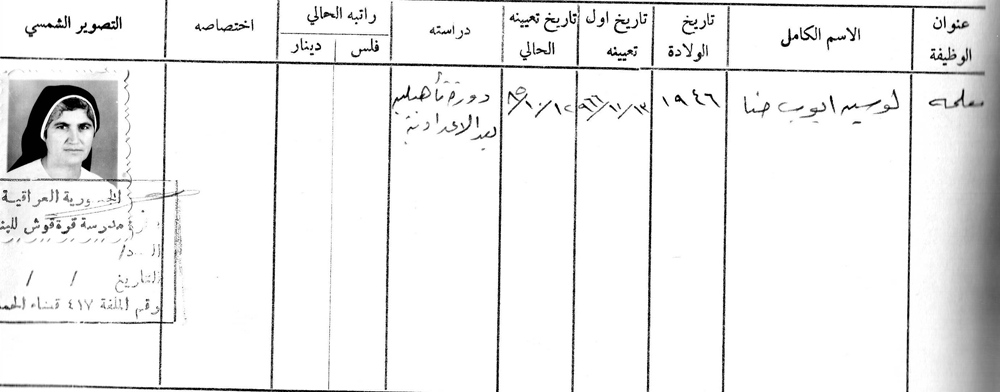 عنوان الوظيفة
الاسم الكامل
تاريخ الولادة
تاريخ اول تعيينه
تاريخ تعيينه الحالي
دراسته
راتبه الحالي
فلس
دينار
اختصاصه
التصوير الشمسي
معلمه
لوسيه ايوب حنا
١٩٤٦
دورة تأهيليه
بعد الاعدادية
الجمهورية العراقية
مدرسة قرةقوش للبنا
العدد/
التاريخ / /
رقم الملفة ٤١٧ قضاء الحمد